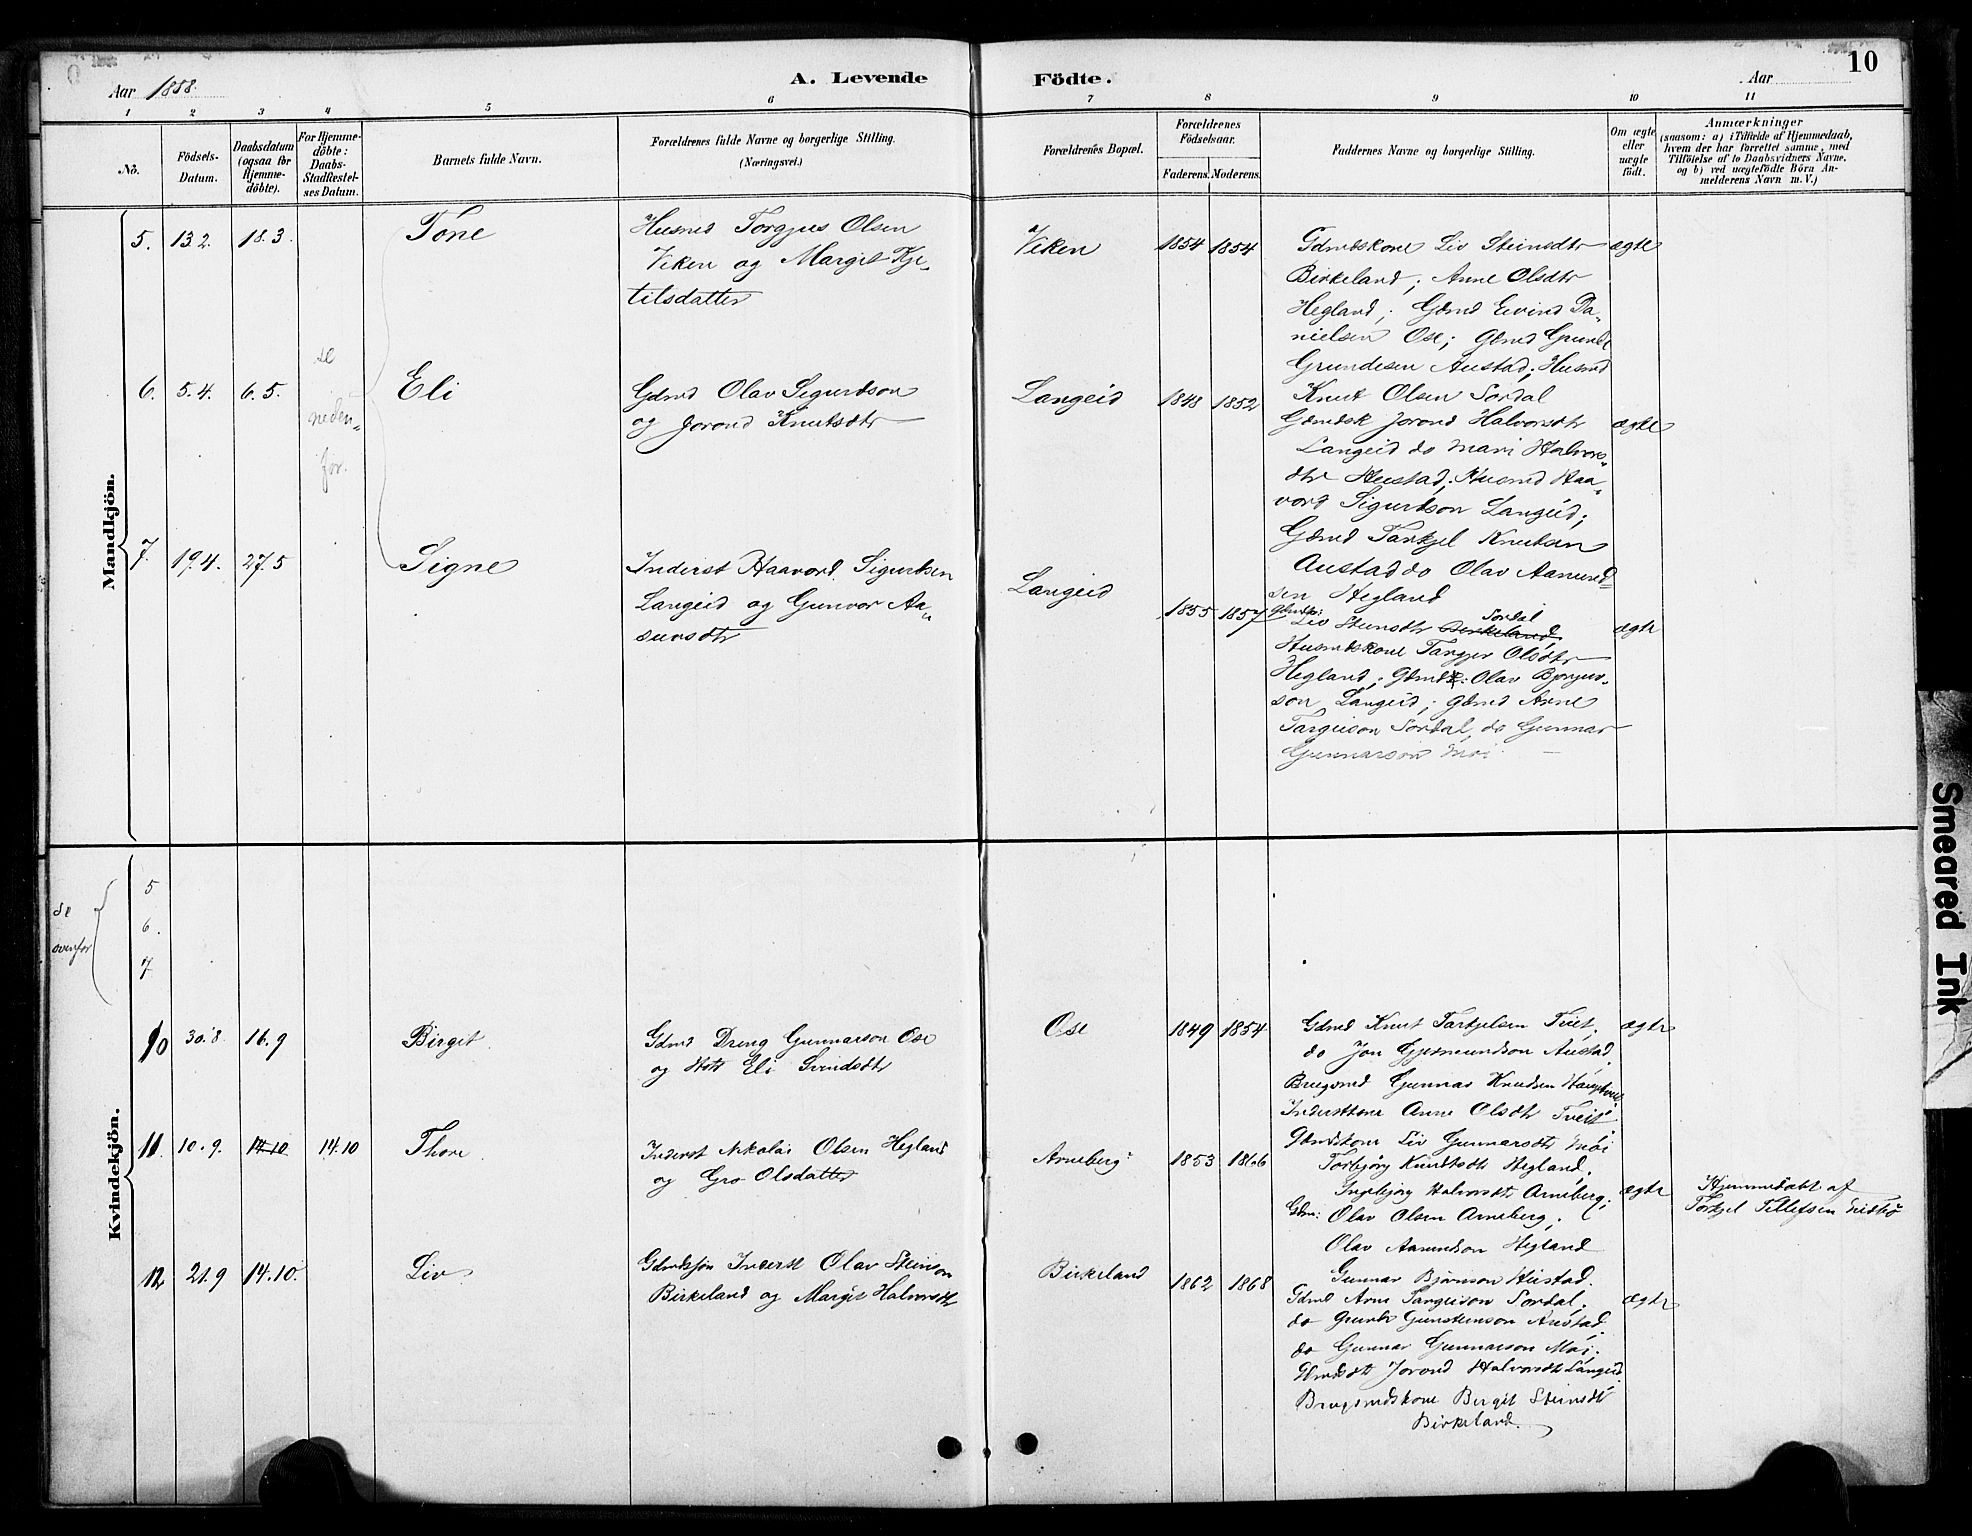 10
Aar 1888.
A. Levende
Födte.
Aar
1 2 3 4 5 6 7 8 9 10 11
No.
Födsels-Datum.
Daabsdatum (ogsaa för Hjemme-döbte).
For Hjemme-döbte: Daabs-Stadfæstel-ses Datum.
Barnets fulde Navn.
Forældrenes fulde Navne og borgerlige Stilling.
(Næringsvei.)
Forældrenes Bopæl.
Forældrenes Födselsaar.
Faderens. Moderens.
Faddernes Navne og borgerlige Stilling.
Om ægte eller uægte födt.
Anmærkninger
(saasom: a) i Tilfælde af Hjemmedaab,
hvem der har forrettet samme, med
Tilföielse af to Daabsvidners Navne,
og b) ved uægtefödte Börn An-
melderens Navn m. V.)
Mandkjön.
5. 13.2. 18.3. Tone
Husmd Torgjus Olsen
Viken og Margit Kje-
tilsdatter
Viken 1854 1854
Gdmdskone Liv Steinsdtr
Birkeland; Anne Olsdtr
Hegland; Gdmd Eivind Da-
nielsen Ose; Gdmd Grunde
Grundesen Austad; Husmd
Knut Olsen Sordal
ægte
se
neden-
for.
6. 5.4. 6.5. Eli
Gdmd Olav Sigurdson
og Jorond Knutsdtr
Langeid 1848 1852
Gdmdsk Jorond Halvorsdtr
Langeid do Mari Halvors-
dtr Heistad; Husmd Haa-
vord Sigurdson Langeid;
Gdmd Tarkjel Knutsen
Austad do Olav Aamund-
sen Hegland
ægte
7. 19.4. 27.5 Signe
Inderst Haavord Sigurdsen
Langeid og Gunvor Aa-
sunsdtr
Langeid
1855 1857
Gdmdsk: Sordal
Liv Steinsdtr Birkeland,
Husmdskone Targjer Olsdtr
Hegland; Gdmd: Olav Bjorgus-
son Langeid; Gdmd Arne
Targeison Sordal, do Gunnar
Gunnarson Moi
ægte
Kvindekjön.
se
ovenfor
5
6.
7.
10 30.8. 16.9 Birgit
Gdmd Dreng Gunnarson Ose
og Hstr Eli Svindsdtr
Ose 1849 1854
Gdmd Knut Tarkjelsen Tveit.
do Jon Gjermundson Austad.
Brugsmd Gunnar Knudsen
Inderstkone Anne Olsdtr Tveit.
Gdmdskone Liv Gunnarsdtr Moi
ægte
11. 10.9. 14.10 14.10 Thore
Inderst Nikolai Olsen Hegland
og Gro Olsdatter
Arneberg 1853 1866
Torbjörg Knudtsdtr Hegland,
Ingebjörg Halvorsdtr Arneberg;
Gdm: Olav Olsen Arneberg;
Olav Aamundson Hegland
Gunnar Bjørnson Heistad.
ægte
Hjemmedøbt af
Torkjel Tellefsen
12 21.9 14.10. Liv
Gdmdssön Inderst Olav Steinson
Birkeland og Margit Halvorsdtr
Birkeland 1862 1868
Gdmd Arne Targeison Sordal,
do Grunde Gunsteinson Austad.
do Gunnar Gunnarson Moi,
Gdmdsdtr Jorond Halvorsdtr Langeid.
Brugsmdskone Birgit Steinsdtr
Birkeland.
ægte
Smeared Ink